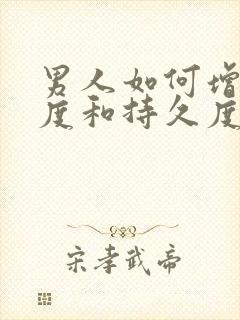 男人如何增
度和持久度
宋孝武帝